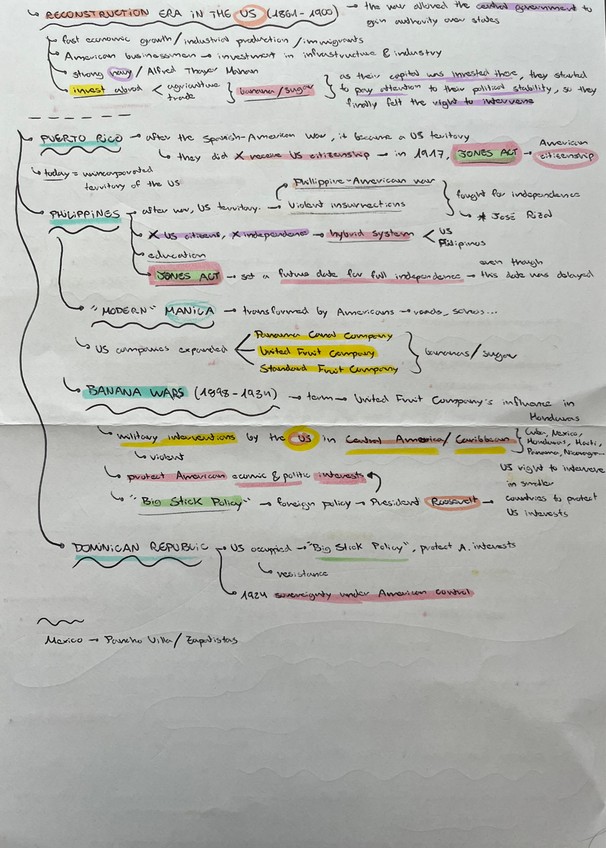 ↳ RECONSTRUCTION ERA IN THE US (1861-1900) → the war allowed the central government to
gain authority over states
↳ fast economic growth / industrial production / immigrants
↳ American businessmen → investment in infrastructure & industry
↳ strong navy / Alfred Thayer Mahan
↳ invest abroad < agriculture } banana/sugar } as their capital was invested there, they started
trade to pay attention to their political stability, so they
finally felt the right to intervene
PUERTO RICO → after the Spanish-American War, it became a US territory
↳ they did X receive US citizenship → in 1917, JONES ACT → American
citizenship
↳ today = unincorporated
territory of the US
PHILIPPINES → after war, US territory. Philippine-American war
Violent insurrections } fought for independence
↳ * José Rizal
↳ X US citizens, X independence → hybrid system < US
Philipinos
↳ education
↳ JONES ACT → set a future date for full independence → even though
this date was delayed
↳ "MODERN" MANILA → transformed by Americans → roads,
↳ US companies expanded Panama Canal Company
United Fruit Company } bananas/sugar
Standard Fruit Company
↳ BANANA WARS (1898-1934) → term → United Fruit Company's influence in
Honduras
↳ military interventions by the US in Central America/Caribbean { Cuba, Mexico,
Honduras, Haiti,
Panama, Nicaragua...
↳ violent
↳ protect American economic & politic interests
↳ "Big Stick Policy" → foreign policy → President Roosevelt → US right to intervene
in smaller
countries to protect
US interests
DOMINICAN REPUBLIC → US occupied → "Big Stick Policy", protect A. interests
↳ resistance
↳ 1924 sovereignty under American control
Mexico → Pancho Villa / Zapatistas